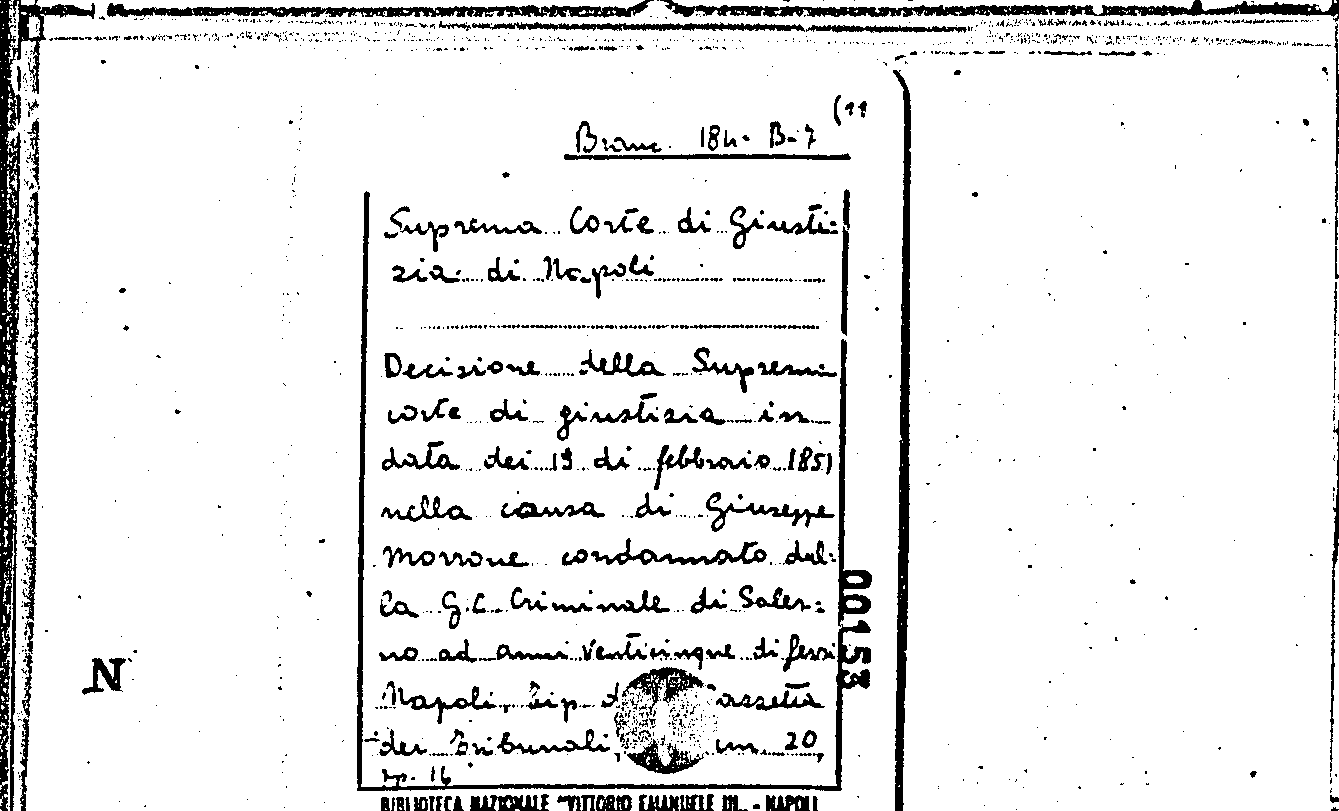 (11
Branc. 184- B-7
Suprema Corte di Giusti=
zia di Napoli
Decisione della Suprema
corte di giustizia in
data dei 19 di febbraio 1851
nella causa di Giuseppe
Morrone condannato dal=
la G.C. Criminale di Saler=
no ad anni venticinque di ferri
Napoli, Tip. d azzetta
dei Tribunali, 20,
pp. 16
BIBLIOTECA NAZIONALE "VITTORIO EMANUELE III" - NAPOLI
00153
N